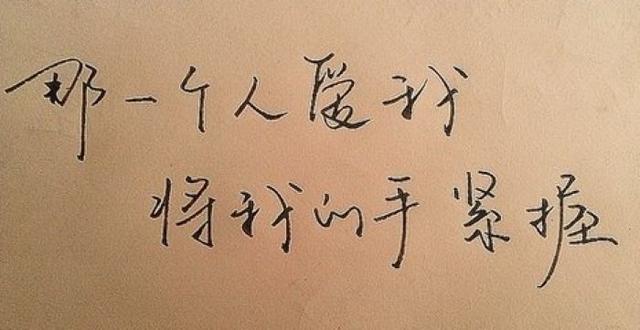 那一个人爱我
将我的手紧握